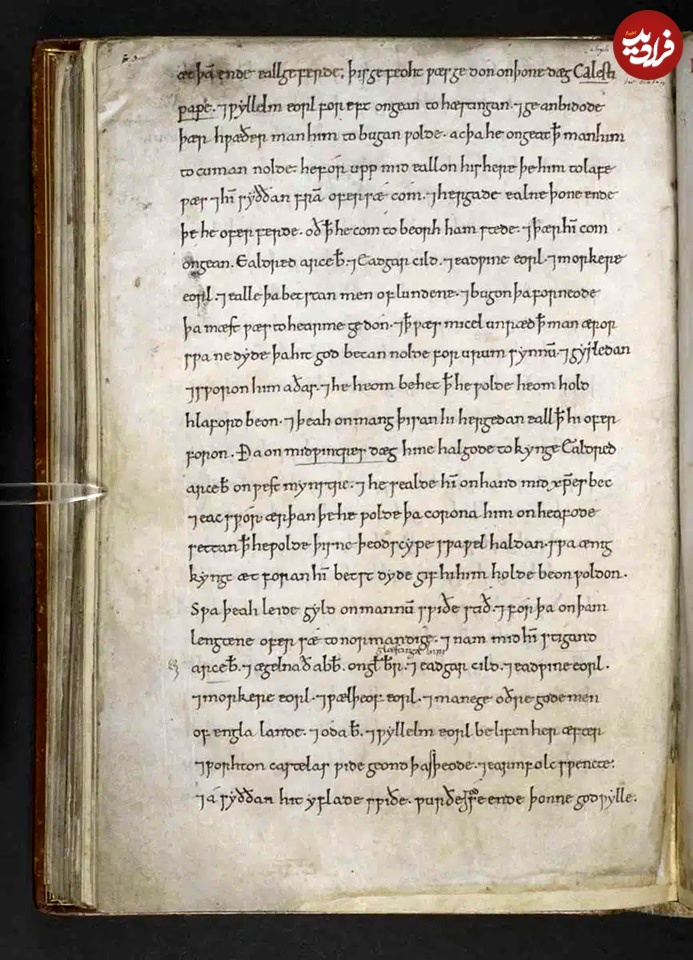 فرادید
æt þā ende eallgeferde; þis gefeoht ƿæs gedon on þone dæg Calesti
pape. ⁊ ƿyllelm eorl for eft ongean to hæstingan. ⁊ geanbidode
þær hƿæðer man him to bugan ƿolde. ac þa he ongeat ꝥ man him
to cuman nolde: he fór upp mid eallon his here þe him to lafe
ƿæs ⁊ hī syððan frā ofer sæ com. ⁊ hergade ealne þone ende
þe he ofer ferde. oð ꝥ he com to beorh ham stede: ⁊ þær hī com
ongean. Ealdred arceƀ. ⁊ Eadgar cild. ⁊ eadƿine eorl. ⁊ morkere
eorl. ⁊ ealle þa betstan men of lundene. ⁊ bugon þa for neode
þa mæst ƿæs to hearme gedon. ⁊ ꝥ ƿæs micel unræd ꝥ man æror
sƿa ne dyde þa hit god betan nolde for urum synnū. ⁊ gysledan
⁊ sƿoron him aðas. ⁊ he heom behet ꝥ he ƿolde heom hold
hlaford beon. ⁊ þeah onmang þisan hi hergedan eall ꝥ hi ofer
foron. Ða on midƿintres dæg hine halgode to kynge Ealdred
arceƀ on ƿest mynstre. ⁊ he sealde hī on hand mid xp̄es bec
⁊ eac sƿór ær þan þe he ƿolde þa corona him on heafode
settan ꝥ he ƿolde þisne þeodscype sƿa ƿel haldan. sƿa ænig
kyngc æt foran hī betst dyde gif hi him holde beon ƿoldon.
Sƿa þeah leide gyld on mannū sƿiðe stið. ⁊ for þa on þam
lengtene ofer sæ to normandige. ⁊ nam mid hī stigand
arceƀ. ⁊ ægelnað abƀ. on glƀr. ⁊ eadgar cild. ⁊ eadƿine eorl.
⁊ morkere eorl. ⁊ ƿælþeof eorl. ⁊ manege oðre gode men
of engla lande. ⁊ oda ƀ. ⁊ ƿyllelm eorl belifen her æfter
⁊ ƿorhton castelas ƿide geond þas þeode. ⁊ earm folc sƿencte:
⁊ á syððan hit yflade sƿiðe. ƿurðe se ende þonne god ƿylle.